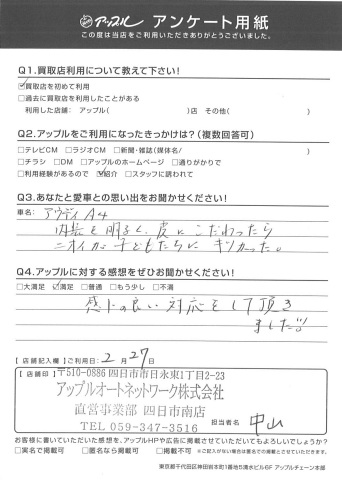 アップル アンケート用紙
この度は当店をご利用いただきありがとうございました。
Q1.買取店利用について教えて下さい!
☑買取店を初めて利用
□過去に買取店を利用したことがある
利用した店舗: アップル( )店 その他( )
Q2.アップルをご利用になったきっかけは?(複数回答可)
□テレビCM □ラジオCM □新聞・雑誌(媒体名/ )
□チラシ □DM □アップルのホームページ □通りがかりで
□利用経験があるので ☑紹介 □スタッフに誘われて
Q3.あなたと愛車との思い出をお聞かせください!
車名: アウディA4
内装を明るく、皮にこだわったら
ニオイが子どもたちにキツかった。
Q4.アップルに対する感想をぜひお聞かせください!
□大満足 ☑満足 □普通 □もう少し □不満
感じの良い対応をして頂き
ました!!
【店舗記入欄】ご利用日: 2月27日
【店舗印】
〒510-0886 四日市市日永東1丁目2-23
アップルオートネットワーク株式会社
直営事業部 四日市南店
TEL 059-347-3516
担当者名 中山
お客様に書いていただいた感想を、アップルHPや広告に掲載させていただいてもよろしいでしょうか?
□実名で掲載可 □匿名なら掲載可 □掲載不可 ※ご記入がない場合は匿名での掲載とさせていただきます。
東京都千代田区神田岩本町1番地5清水ビル6F アップルチェーン本部